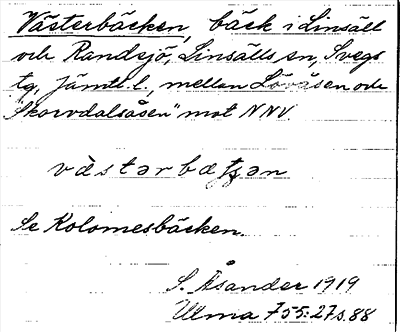 Västerbäcken, bäck i Linsäll
och Randsjö, Linsälls sn, Svegs
tg, Jämtl. l., mellan Lövåsen och
"Skorvdalsåsen" mot NNV.
Se Kolomesbäcken.
S. Åsander 1919
Ulma 755:27 s. 88